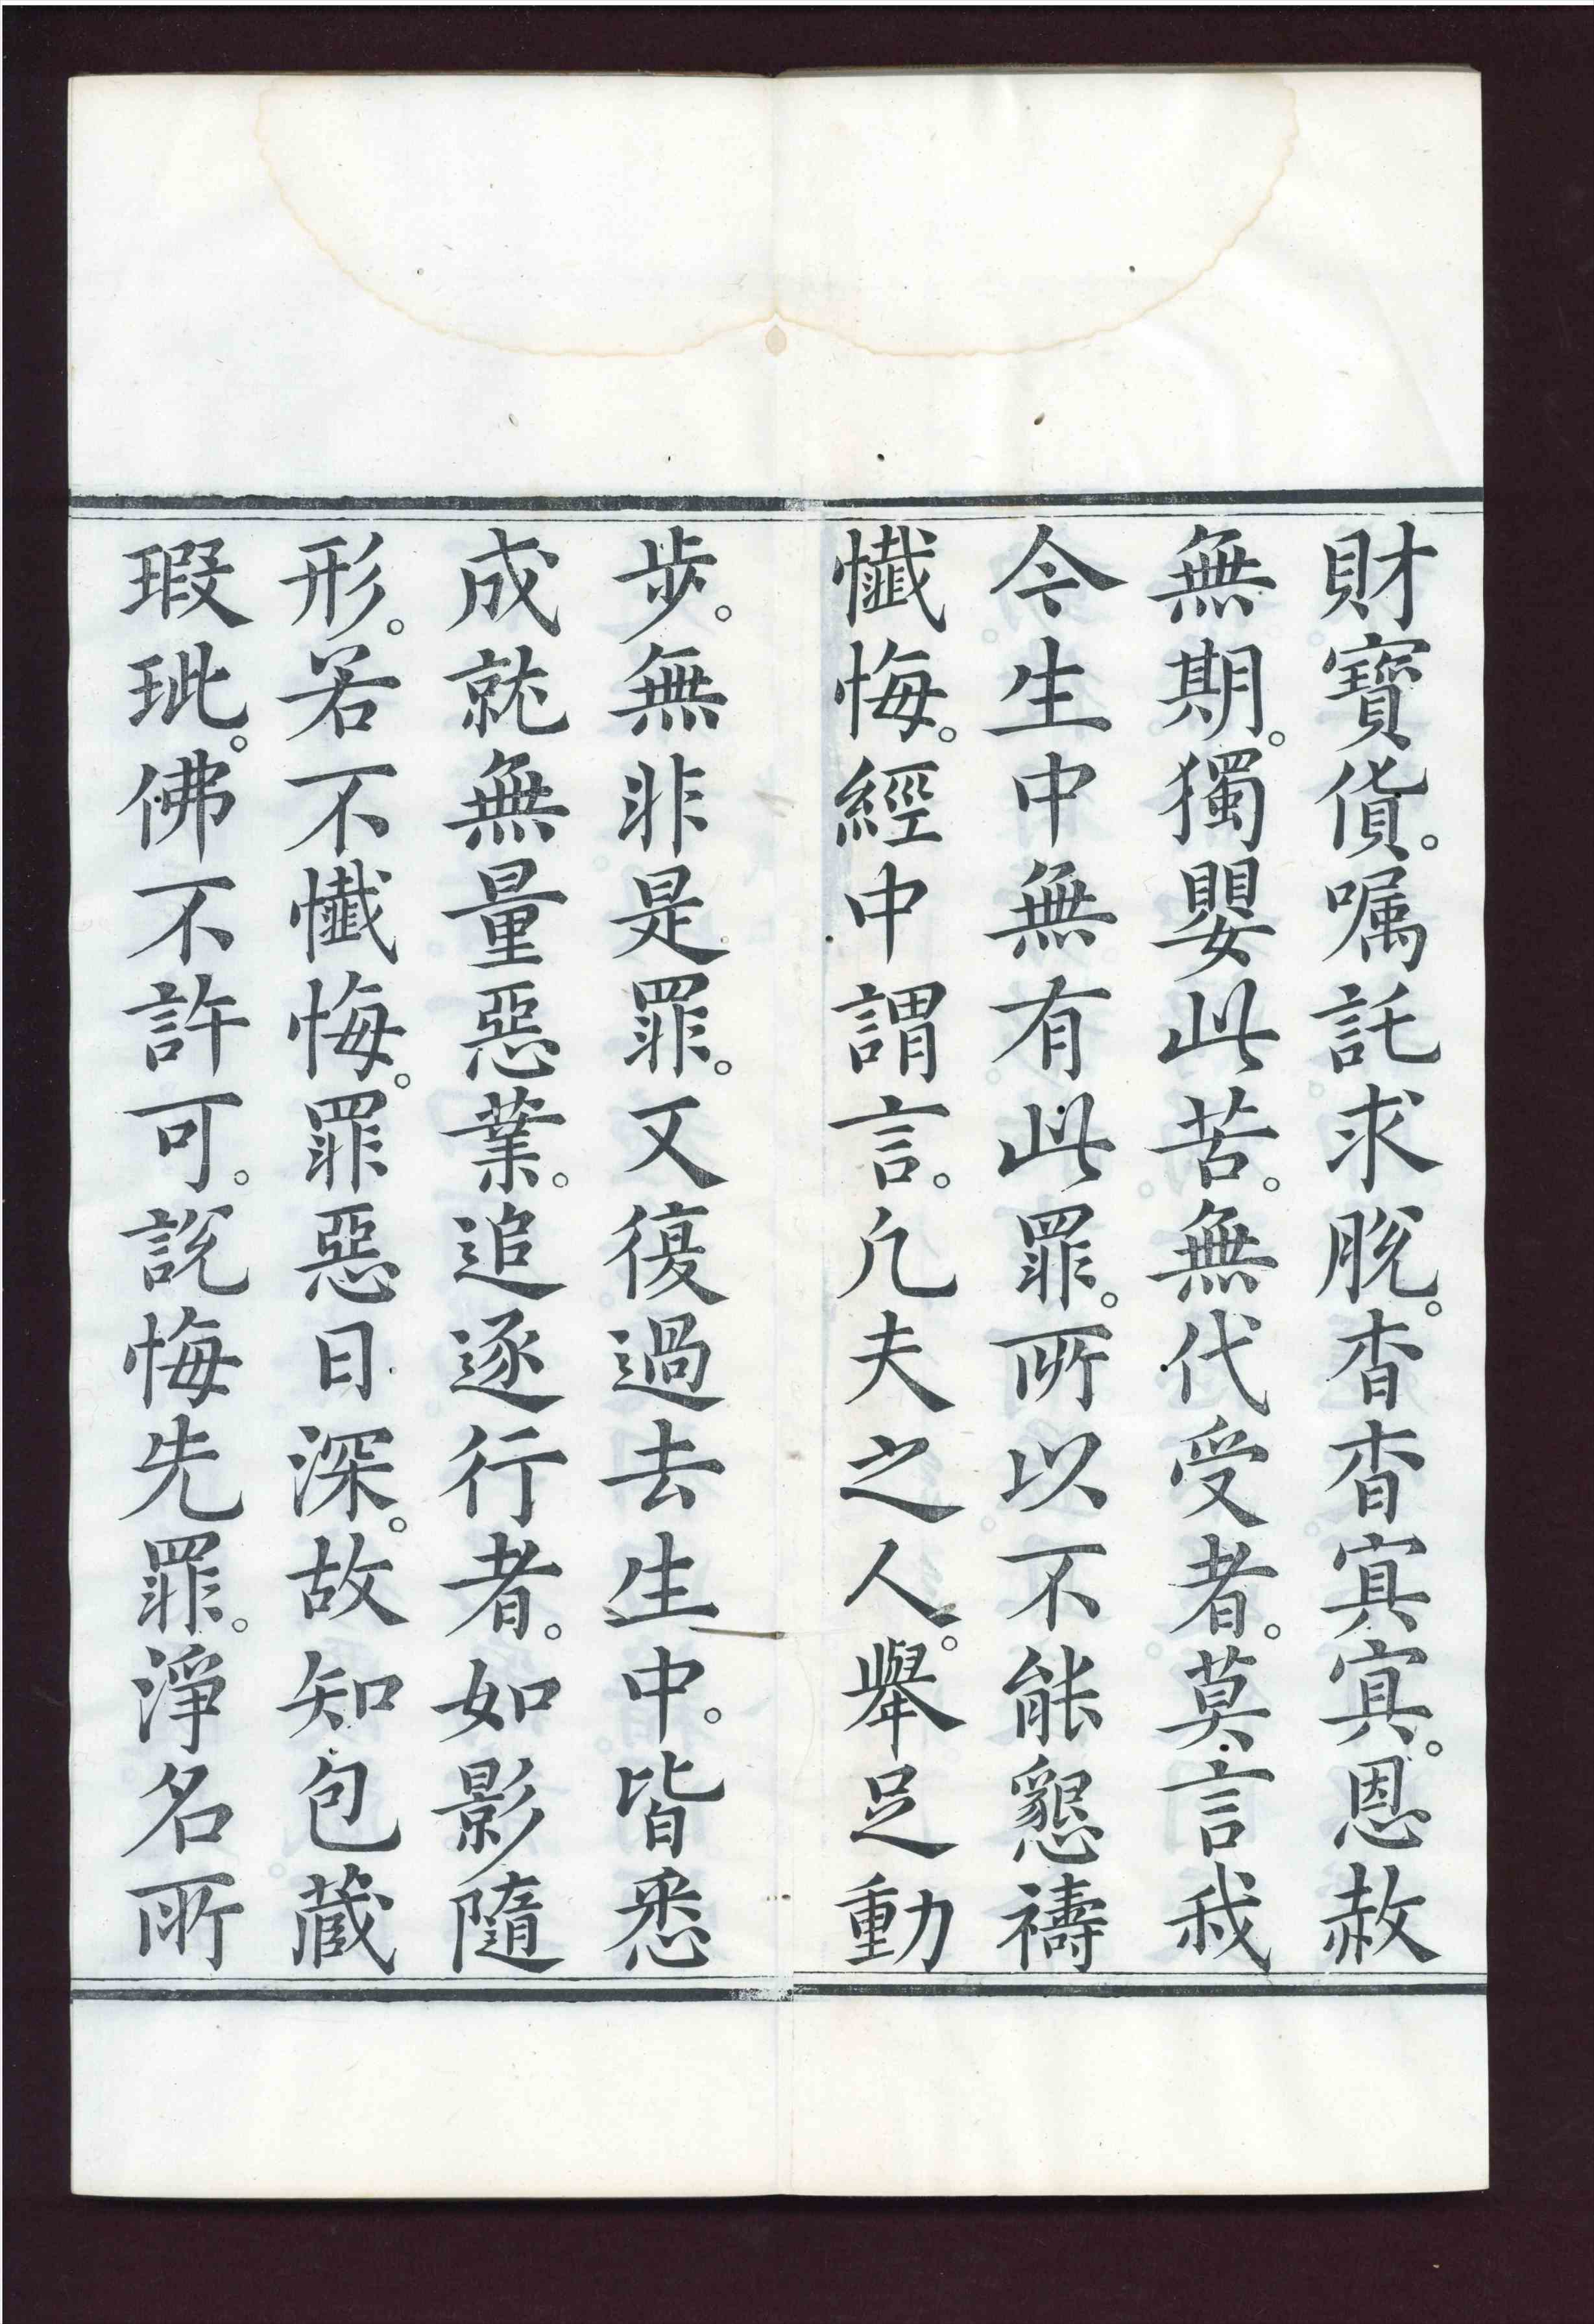 財寶貨。嘱託求脫。杳杳㝠㝠。恩赦
無期。獨嬰此苦。無代受者。莫言我
今生中無有此罪。所以不能懇禱
懺悔。經中謂言。凡夫之人。舉足動
步。無非是罪。又復過去生中。皆悉
成就無量惡業。追逐行者。如影隨
形。若不懺悔。罪惡日深。故知包藏
瑕玼。佛不許可。說悔先罪。淨名所